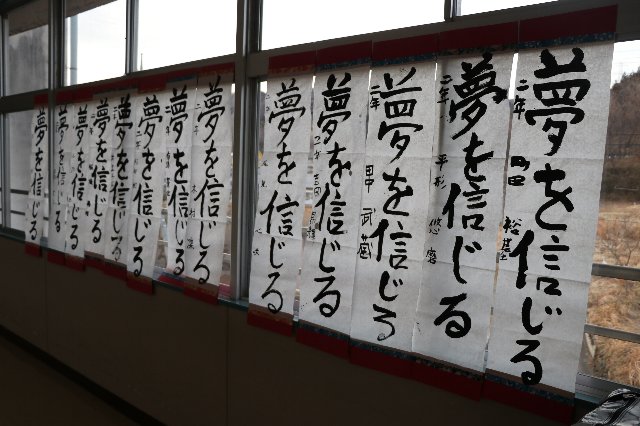 夢を信じる
二年
夢を信じる
二年 平形 悠
夢を信じる
二年
夢を信じる
二年 吉田
夢を信じる
夢を信じる
二年
夢を信じる
夢を信じる
夢を信じる
夢を信じる
夢を信じる
夢を信じる
夢を信じる